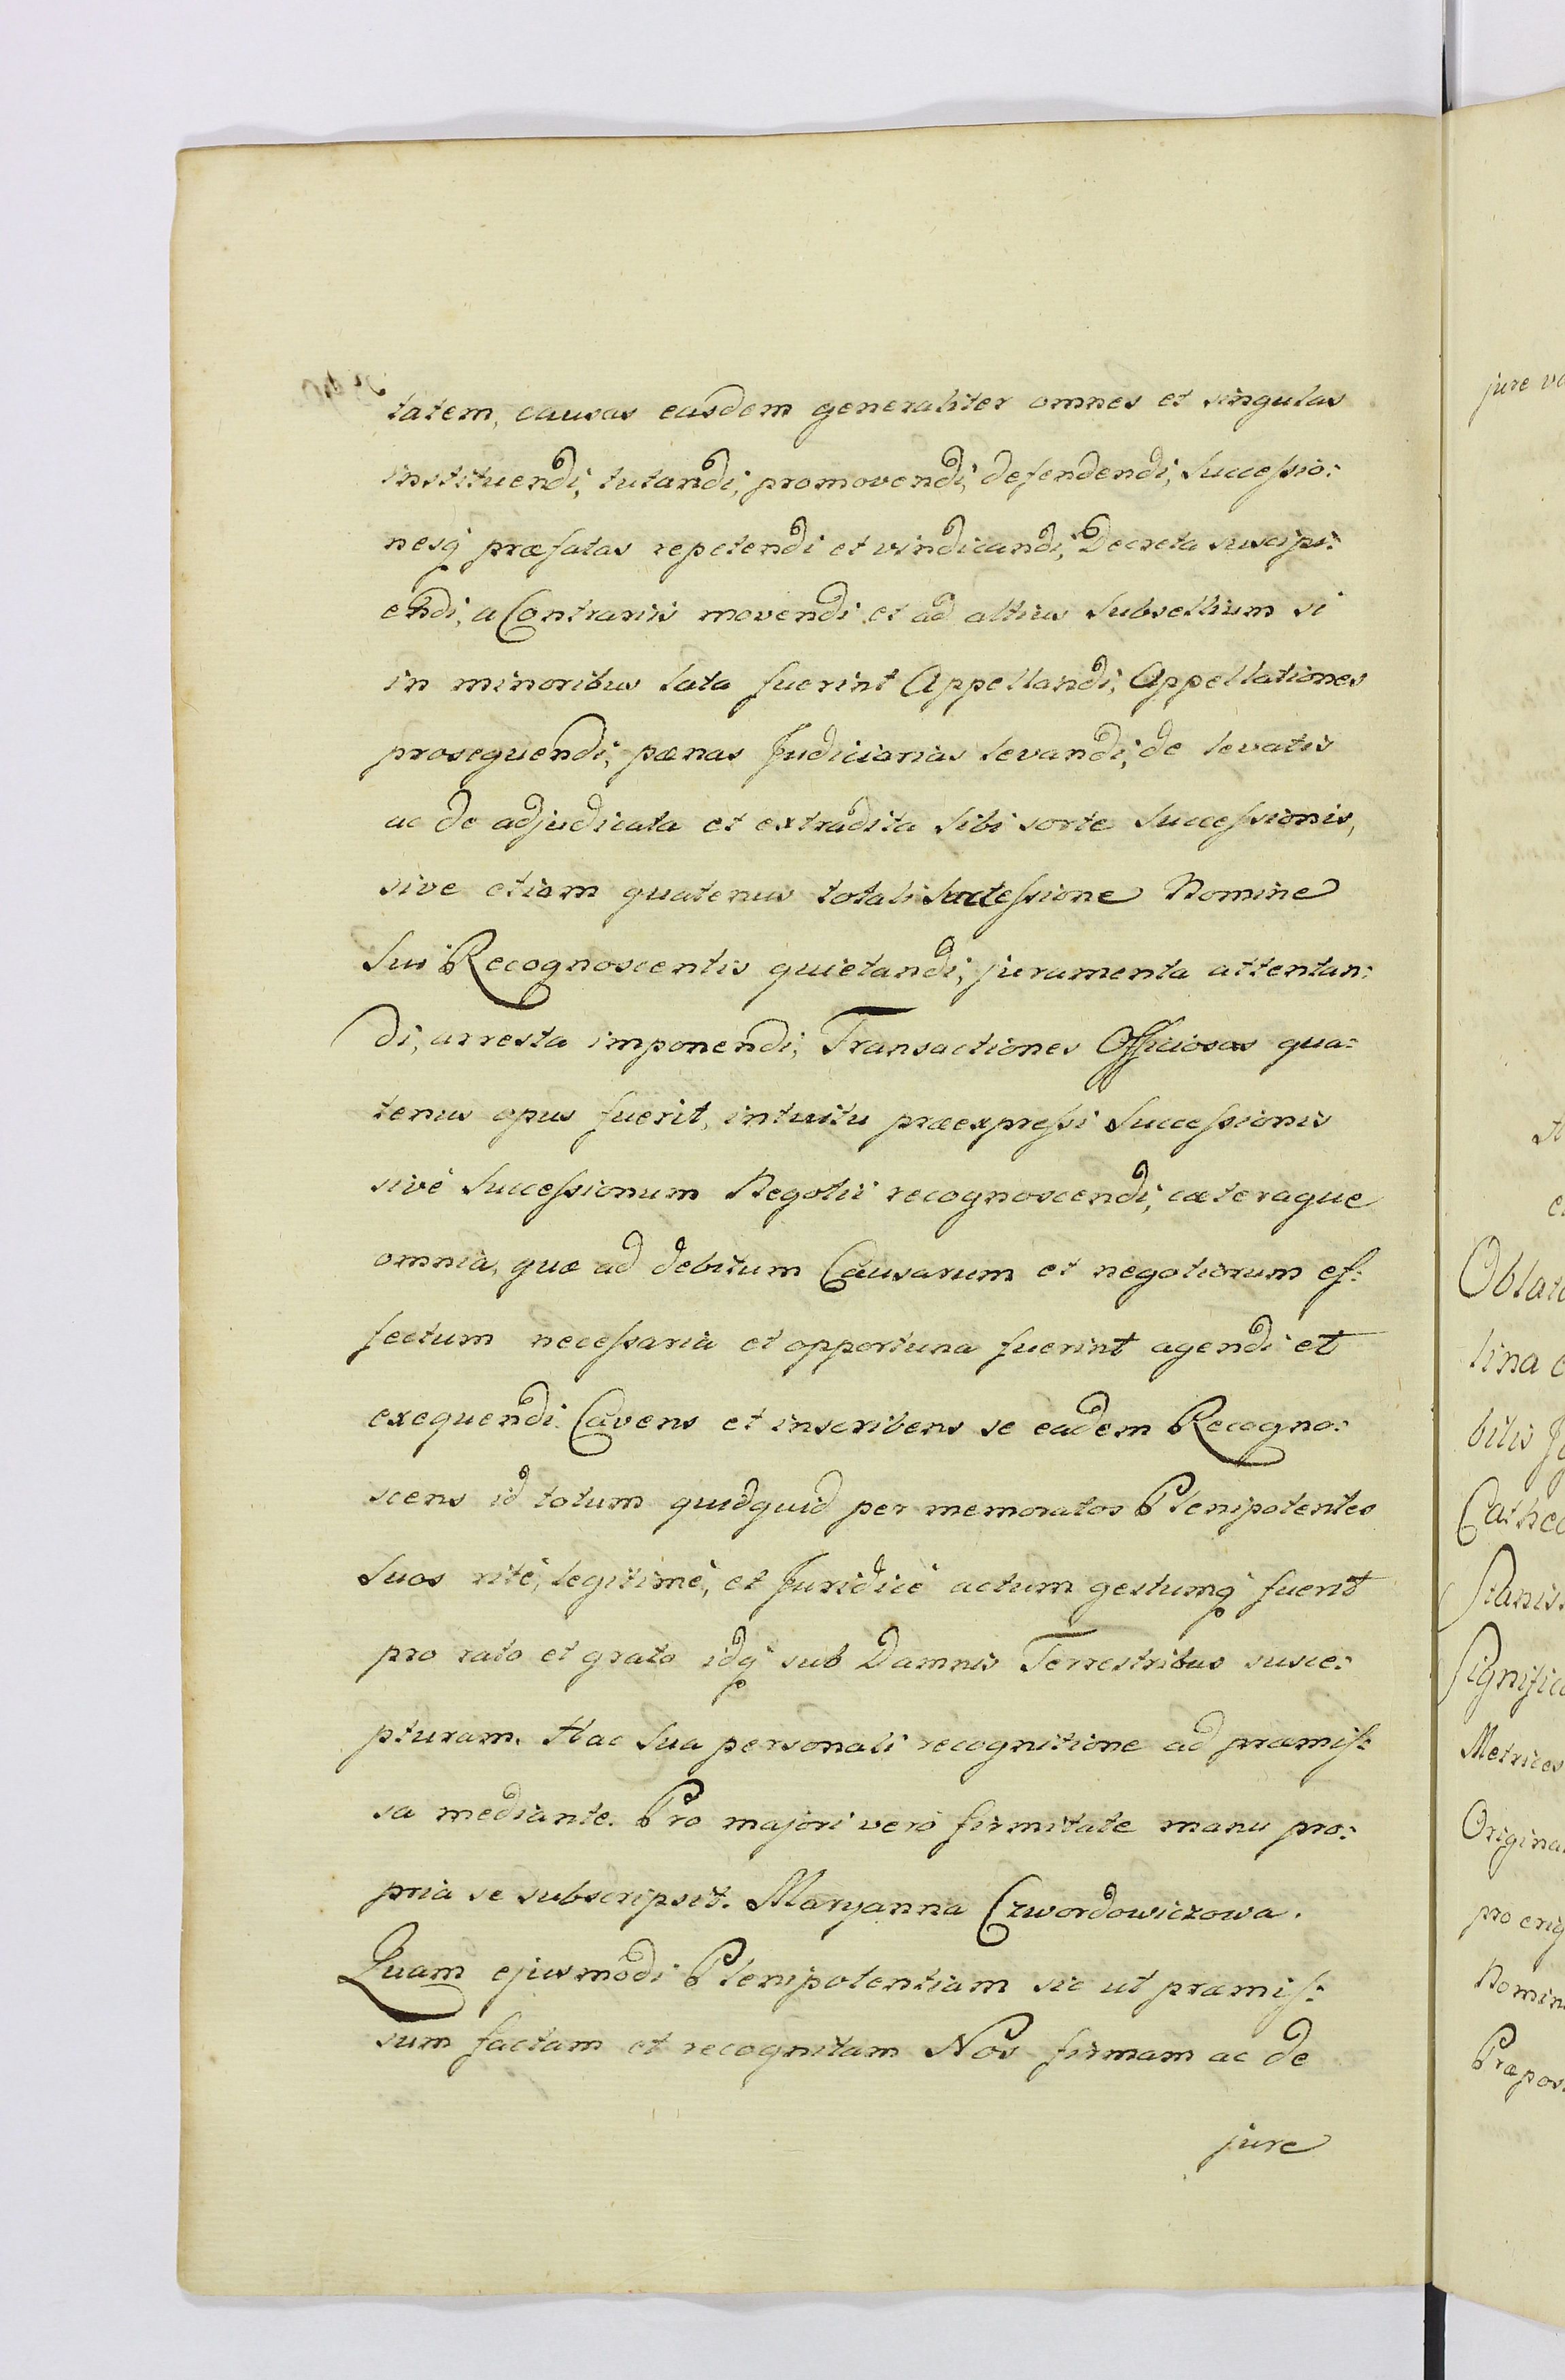 tatem, causas easdem generaliter omnes et singulas
instituendi, tutandi, promovendi, defendendi, Successio:
nesq præfatas repetendi et vindicandi, Decreta suscipi:
endi, a Contrariis movendi et ad altius Subsellium si
in minoribus lata fuerint Appellandi, Appellationes
prosequendi, pænas Judiciarias levandi, de levatis
ac de adjudicata et extradita sibi sorte Successionis,
sive etiam quatenus totali Successione Nomine
Sui Recognoscentis quietandi, juramenta attentan:
di, arresta imponendi, Transactiones Officiosas qua:
tenus opus fuerit, intuitu præexpressi Successionis
sivè Successionum Negotii recognoscendi, cæteraque
omnia, quæ ad debitum Causarum et negotiorum ef:
fectum necessaria et opportuna fuerint agendi et
exequendi. Cavens et inscribens se eadem Recogno:
scens id totum quidquid per memoratos Plenipotentes
Suos ritè, legitimè, et Juridicè actum gestumq fuerit
pro rato et grato idq sub Damnis Terrestribus susce:
pturam. Hac Sua personali recognitione ad præmis:
sa mediante. Pro majori verò firmitate manu pro:
pria se subscripsit. Maryanna Czwordowiczowa.
Quam ejusmodi Plenipotentiam sic ut præmis:
sum factam et recognitam Nos firmam ac de
jure
jure va
Oblat
tina
bilis
Cathed
Stanis
Signific
Metrices
Origina
pro
Nomin
Præpos